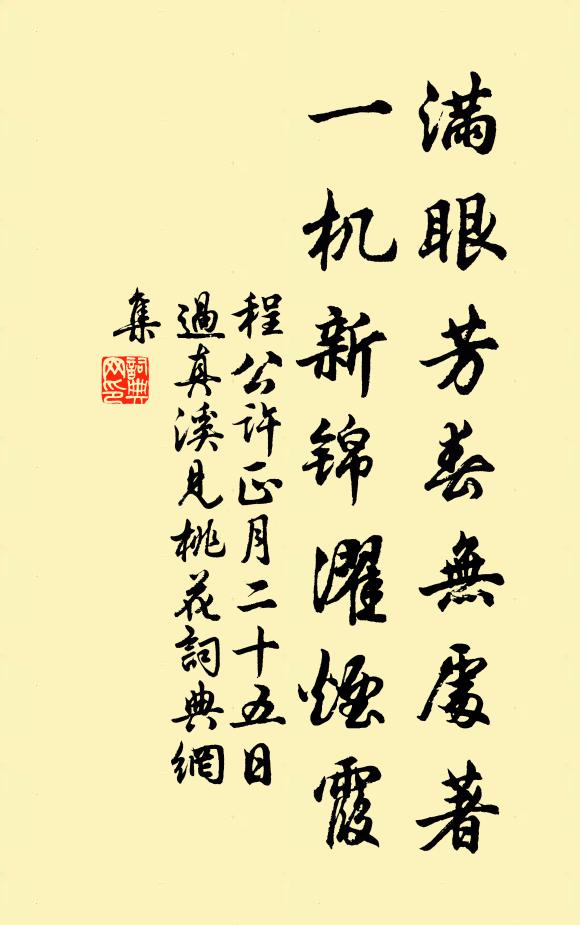 滿眼芳春無處著
一机新锦濯煙霞
程公許正月二十五日
過真溪見桃花詞典網
集
詞典
网印